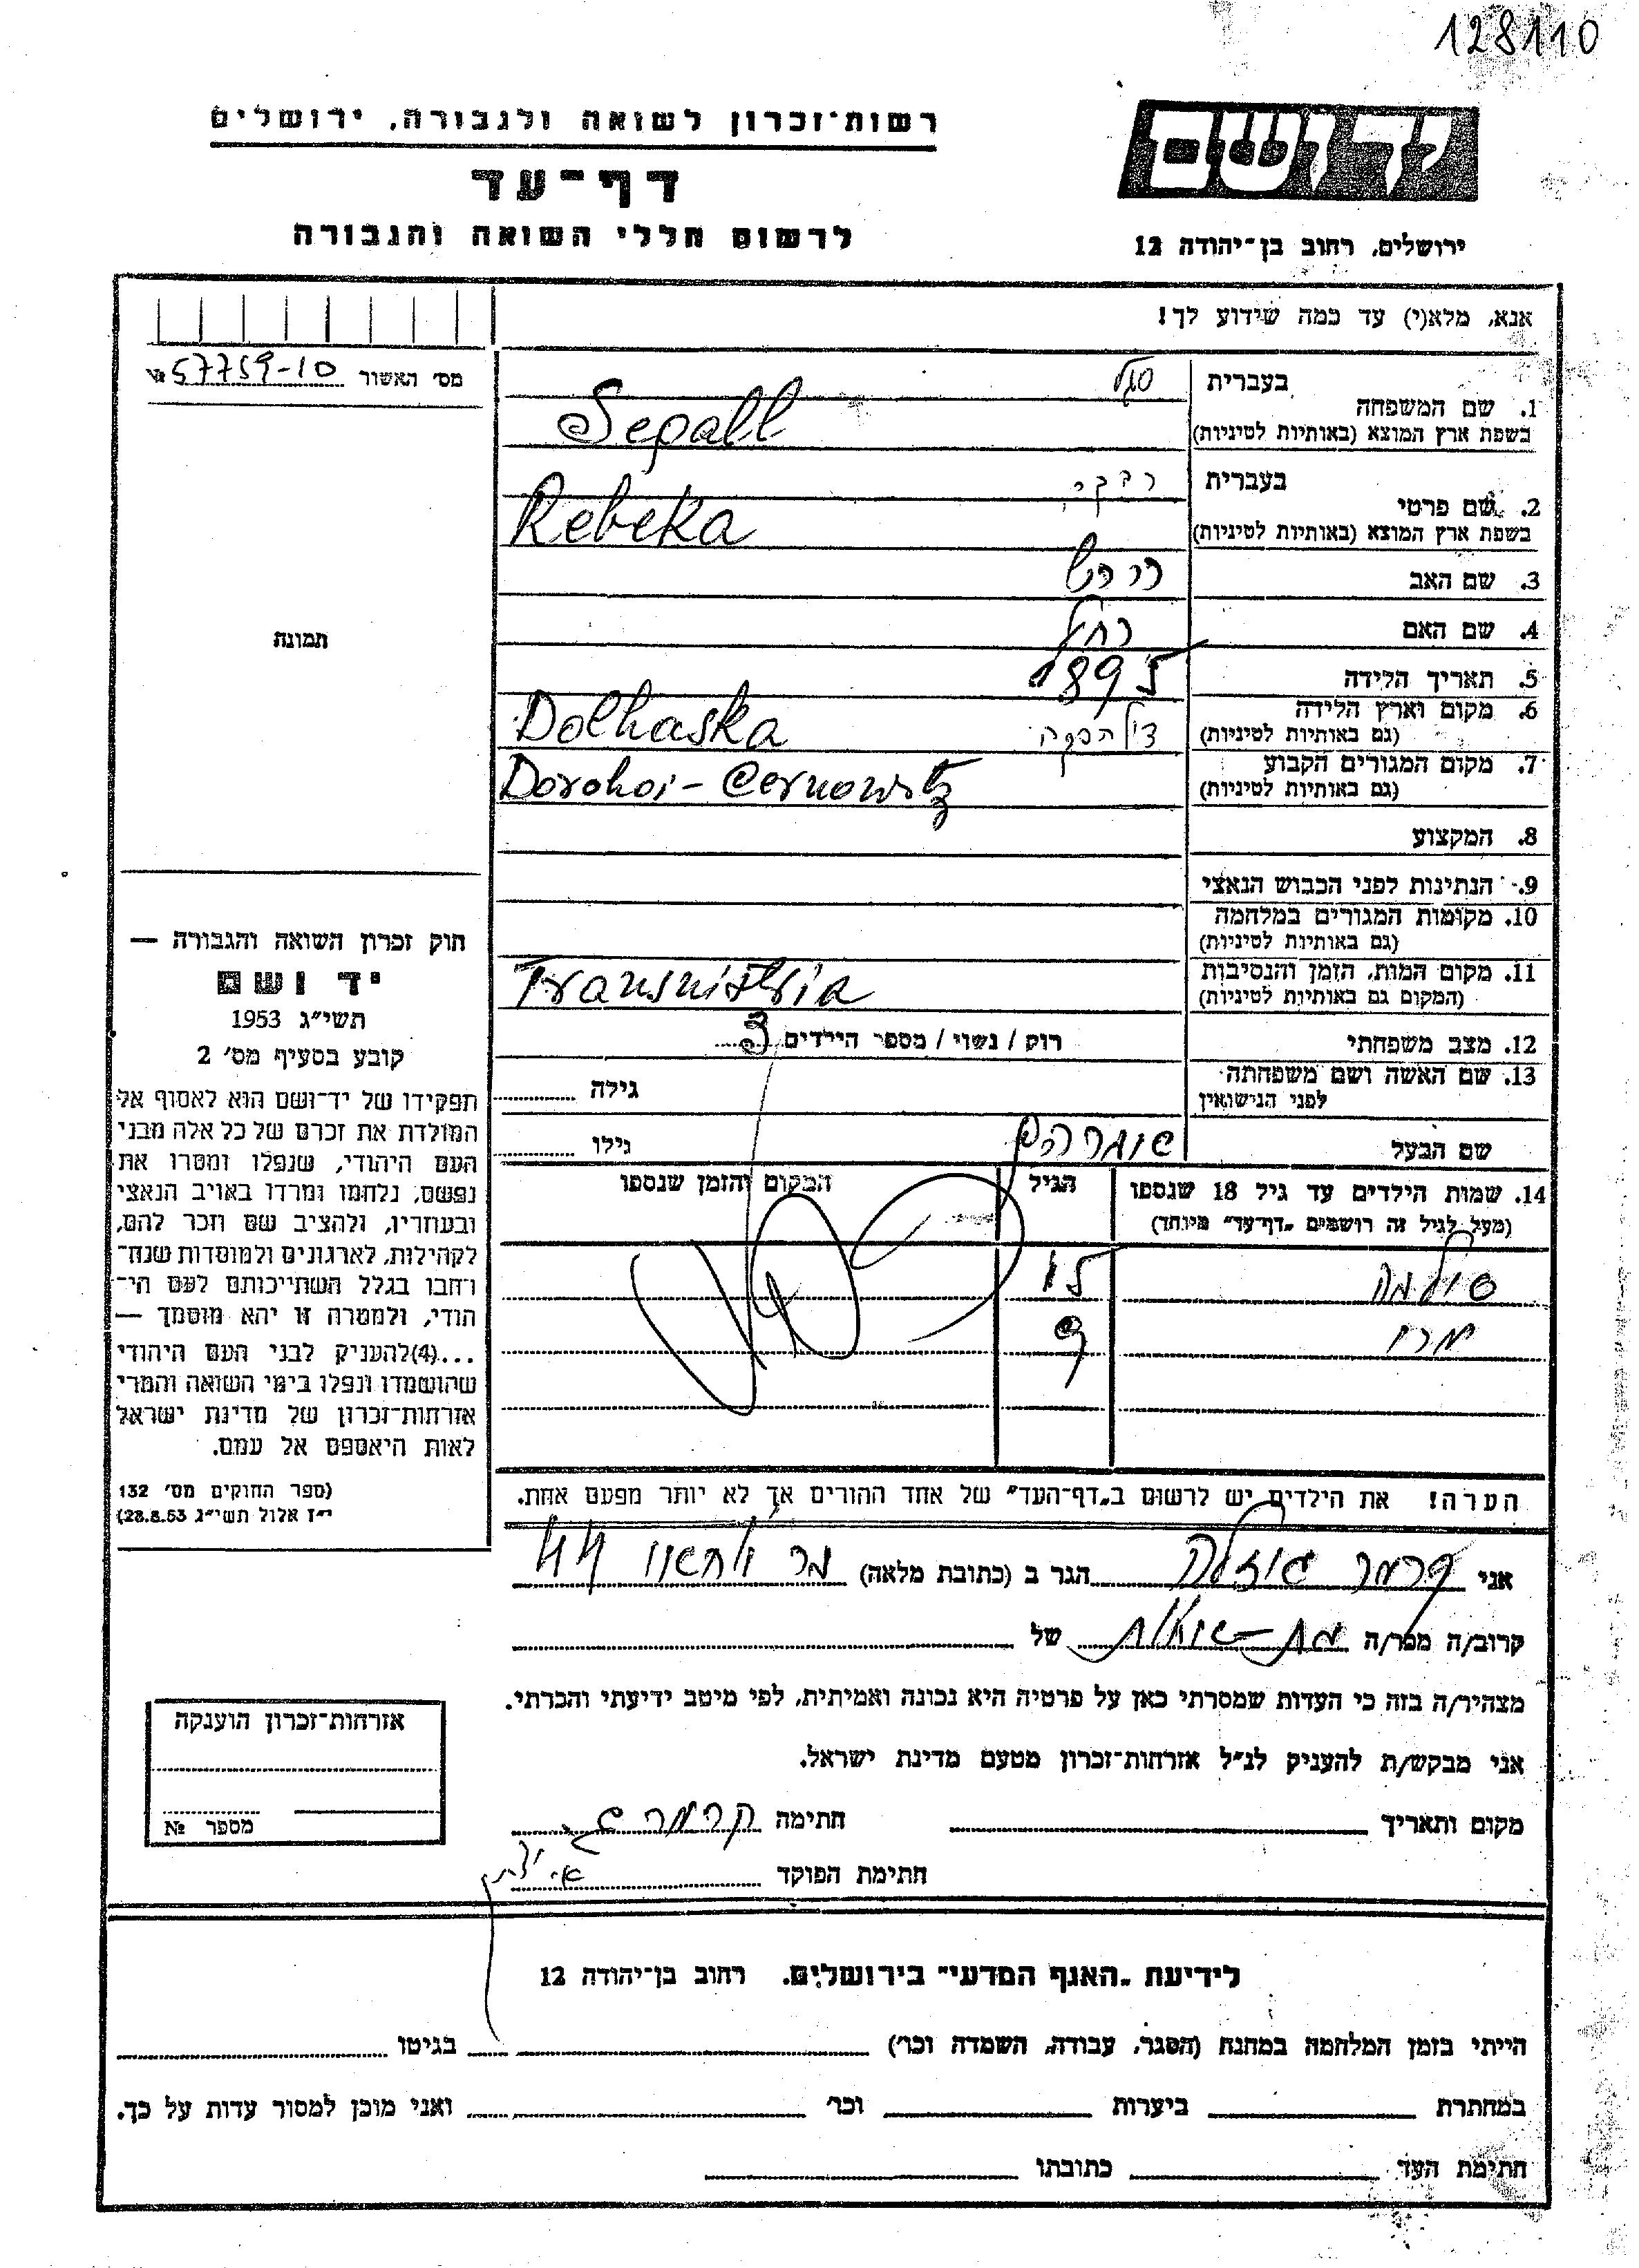 128110
רשות־זכרון לשואה ולגבורה, ירושלים
דף־עד
לרשום חללי השואה והגבורה
יד ושם
ירושלים, רחוב בן־יהודה 12
אנא, מלא(י) עד כמה שידוע לך!
מס׳ האשור 57759-10 №
תמונה
1. שם המשפחה
בעברית סגל
בשפת ארץ המוצא (באותיות לטיניות) Segall
2. שם פרטי
בעברית רבקה
בשפת ארץ המוצא (באותיות לטיניות) Rebeka
3. שם האב הרש
4. שם האם רחל
5. תאריך הלידה 1895
6. מקום וארץ הלידה
(גם באותיות לטיניות) דולהסקה Dolhaska
7. מקום המגורים הקבוע
(גם באותיות לטיניות) Dorohoi - Cernowitz
8. המקצוע
9. הנתינות לפני הכבוש הנאצי
10. מקומות המגורים במלחמה
(גם באותיות לטיניות)
11. מקום המות, הזמן והנסיבות
(המקום גם באותיות לטיניות) Transnistria
12. מצב משפחתי רוק / נשוי / מספר הילדים 3
13. שם האשה ושם משפחתה
לפני הנישואין גילה
שם הבעל גילו
14. שמות הילדים עד גיל 18 שנספו
(מעל לגיל זה רושמים „דף־עד״ מיוחד)
הגיל
המקום והזמן שנספו
סולמה 15
מרו 9
הערה! את הילדים יש לרשום ב„דף־העד״ של אחד ההורים אך לא יותר מפעם אחת.
חוק זכרון השואה והגבורה —
יד ושם
תשי״ג 1953
קובע בסעיף מס׳ 2
תפקידו של יד־ושם הוא לאסוף אל
המולדת את זכרם של כל אלה מבני
העם היהודי, שנפלו ומסרו את
נפשם, נלחמו ומרדו באויב הנאצי
ובעוזריו, ולהציב שם וזכר להם,
לקהילות, לארגונים ולמוסדות שנח־
רחבו בגלל השתייכותם לעם הי־
הודי, ולמטרה זו יהא מוסמך —
...(4)להעניק לבני העם היהודי
שהושמדו ונפלו בימי השואה והמרי
אזרחות־זכרון של מדינת ישראל
לאות היאספם אל עמם.
(ספר החוקים מס׳ 132
י״ז אלול תשי״ג 28.8.53)
אני קרמר גיזלה הגר ב (כתובת מלאה) 44
קרוב/ה מכר/ה של
מצהיר/ה בזה כי העדות שמסרתי כאן על פרטיה היא נכונה ואמיתית, לפי מיטב ידיעתי והכרתי.
אני מבקש/ת להעניק לנ״ל אזרחות־זכרון מטעם מדינת ישראל.
מקום ותאריך חתימה קרמר ג.
חתימת הפוקד
אזרחות־זכרון הוענקה
מספר №
לידיעת „האגף המדעי״ בירושלים, רחוב בן־יהודה 12
הייתי בזמן המלחמה במחנה (הסגר, עבודה, השמדה וכו׳) בגיטו
במחתרת ביערות וכו׳ ואני מוכן למסור עדות על כך.
חתימת העד כתובתו